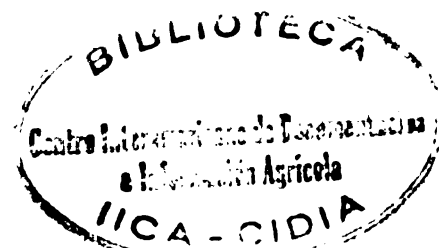 BIBLIOTECA
Centro Interamericano de Documentacion
e Información Agrícola
IICA - CIDIA